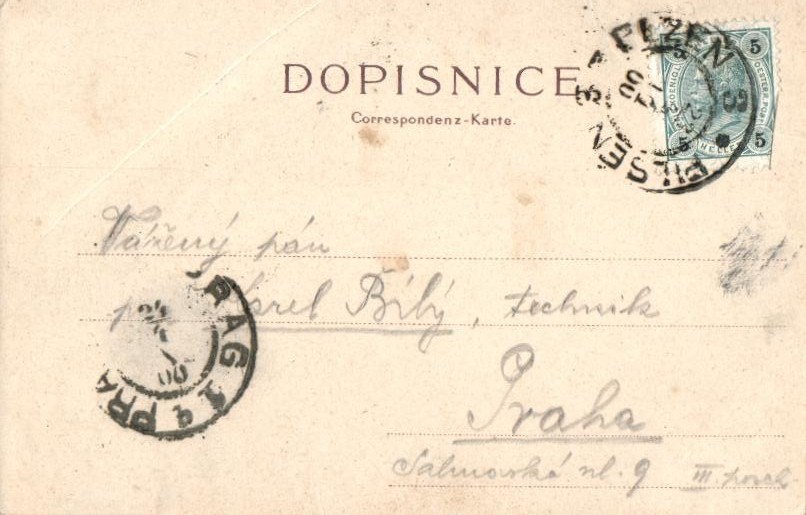 DOPISNICE
Correspondenz-Karte.
PLZEN 3
PILSEN
5 5
5 5
HELLER
Vážený pán
p. Karel Bílý, technik
Praha
Salmovská ul. 9 III. posch.
PRAG
PRA
00